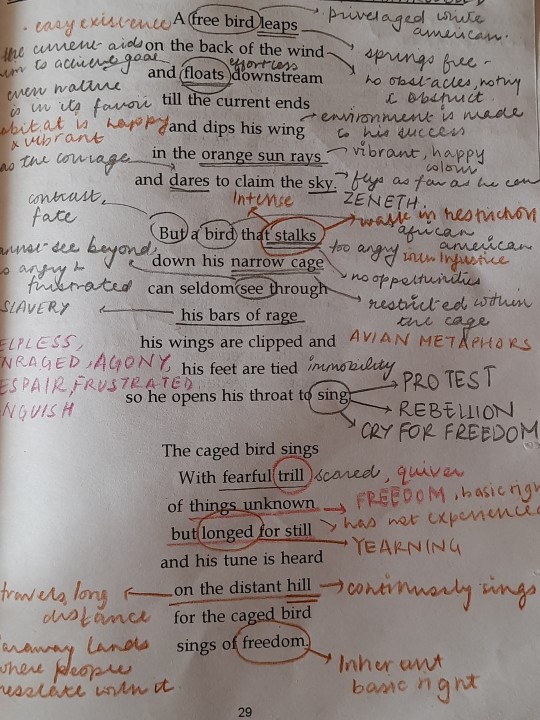 · easy existence A free bird leaps privelaged white
american.
the current aids on the back of the wind springs free -
to achieve goal effortless
and floats downstream no obstacles, nothing
even nature to obstruct.
is in its favor till the current ends
habitat is happy and dips his wing environment is made
& vibrant to his success
in the orange sun rays vibrant, happy
has the courage colour
and dares to claim the sky. flys as far as he can
contrast, Intense ZENETH.
fate walk in restriction
But a bird that stalks african
cannot see beyond, too angry american
down his narrow cage injustice
is angry & no opportunities
frustrated can seldom see through restricted within
SLAVERY his bars of rage the cage
HELPLESS, his wings are clipped and AVIAN METAPHORS
ENRAGED, AGONY, his feet are tied immobility
DESPAIR, FRUSTRATED PROTEST
ANGUISH so he opens his throat to sing REBELLION
CRY FOR FREEDOM
The caged bird sings
With fearful trill scared, quiver
of things unknown FREEDOM, basic right
but longed for still has not experienced
YEARNING
and his tune is heard
travels long on the distant hill continuosly sings
distance for the caged bird
faraway lands sings of freedom.
where people Inherant
resolate with it. basic right
29